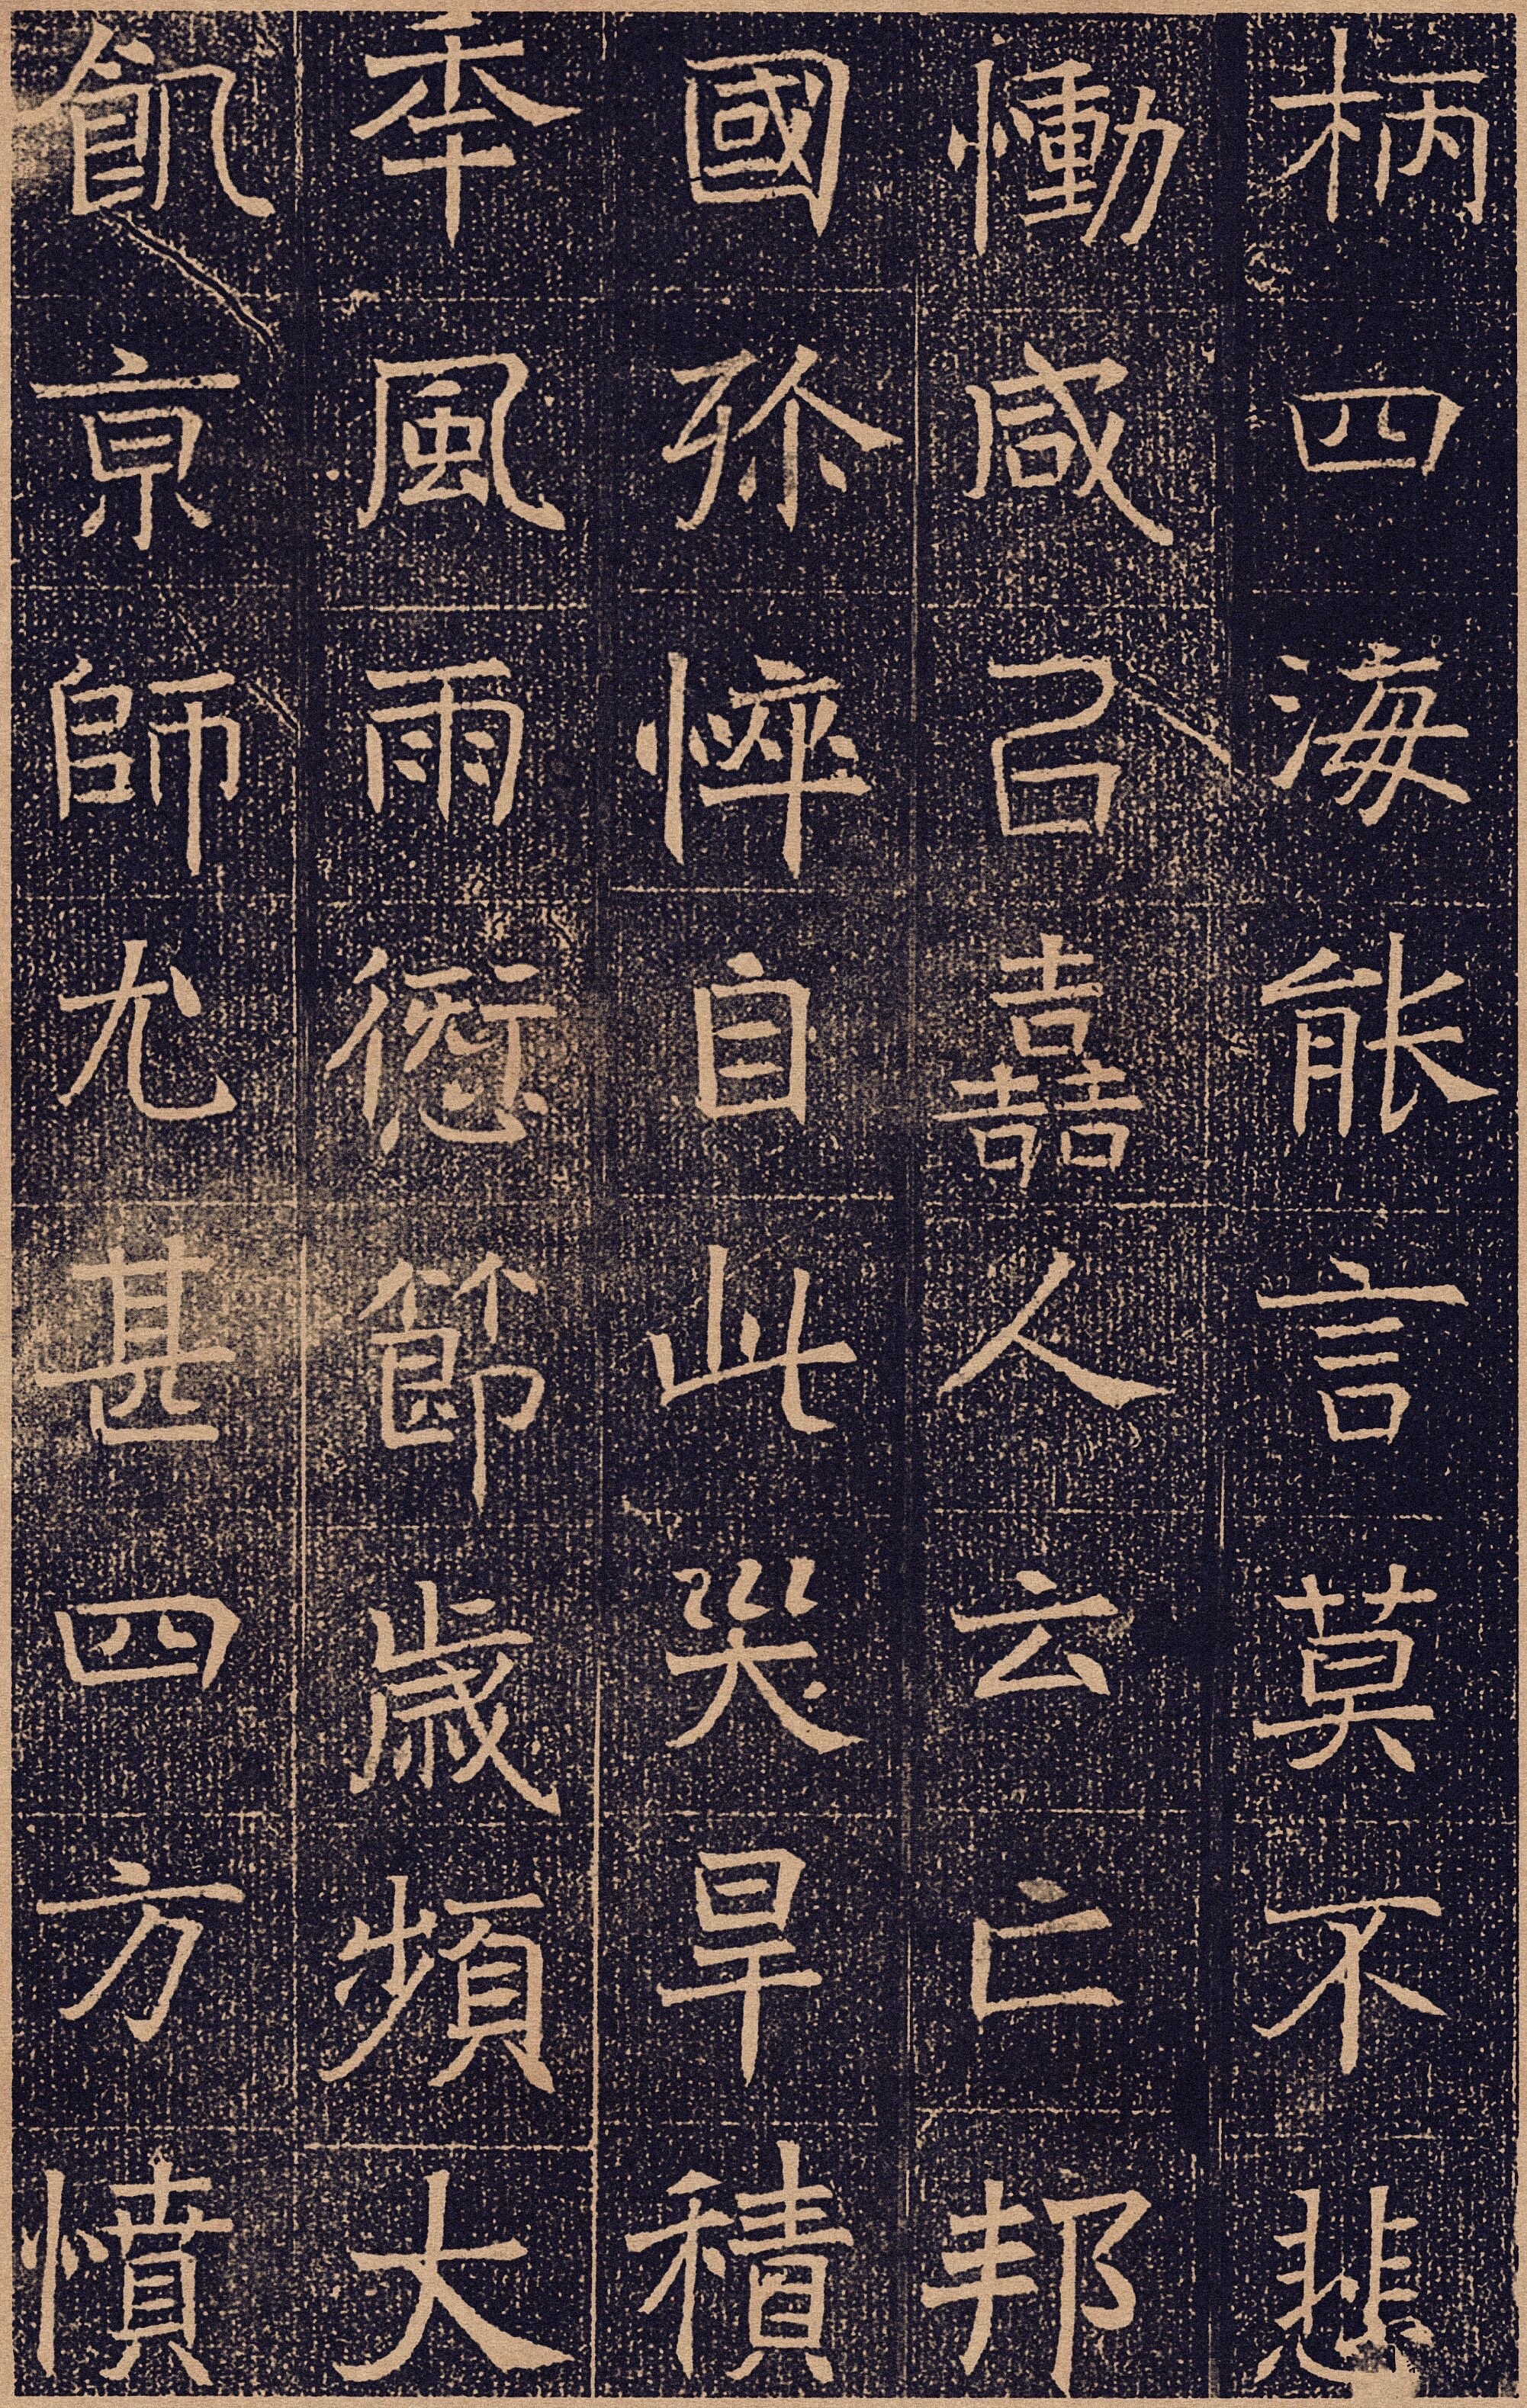 柄四海能言莫不悲
慟咸㠯嚞人云亡邦
國殄悴自此災旱積
年風雨愆節歲頻大
飢京師尤甚四方憤